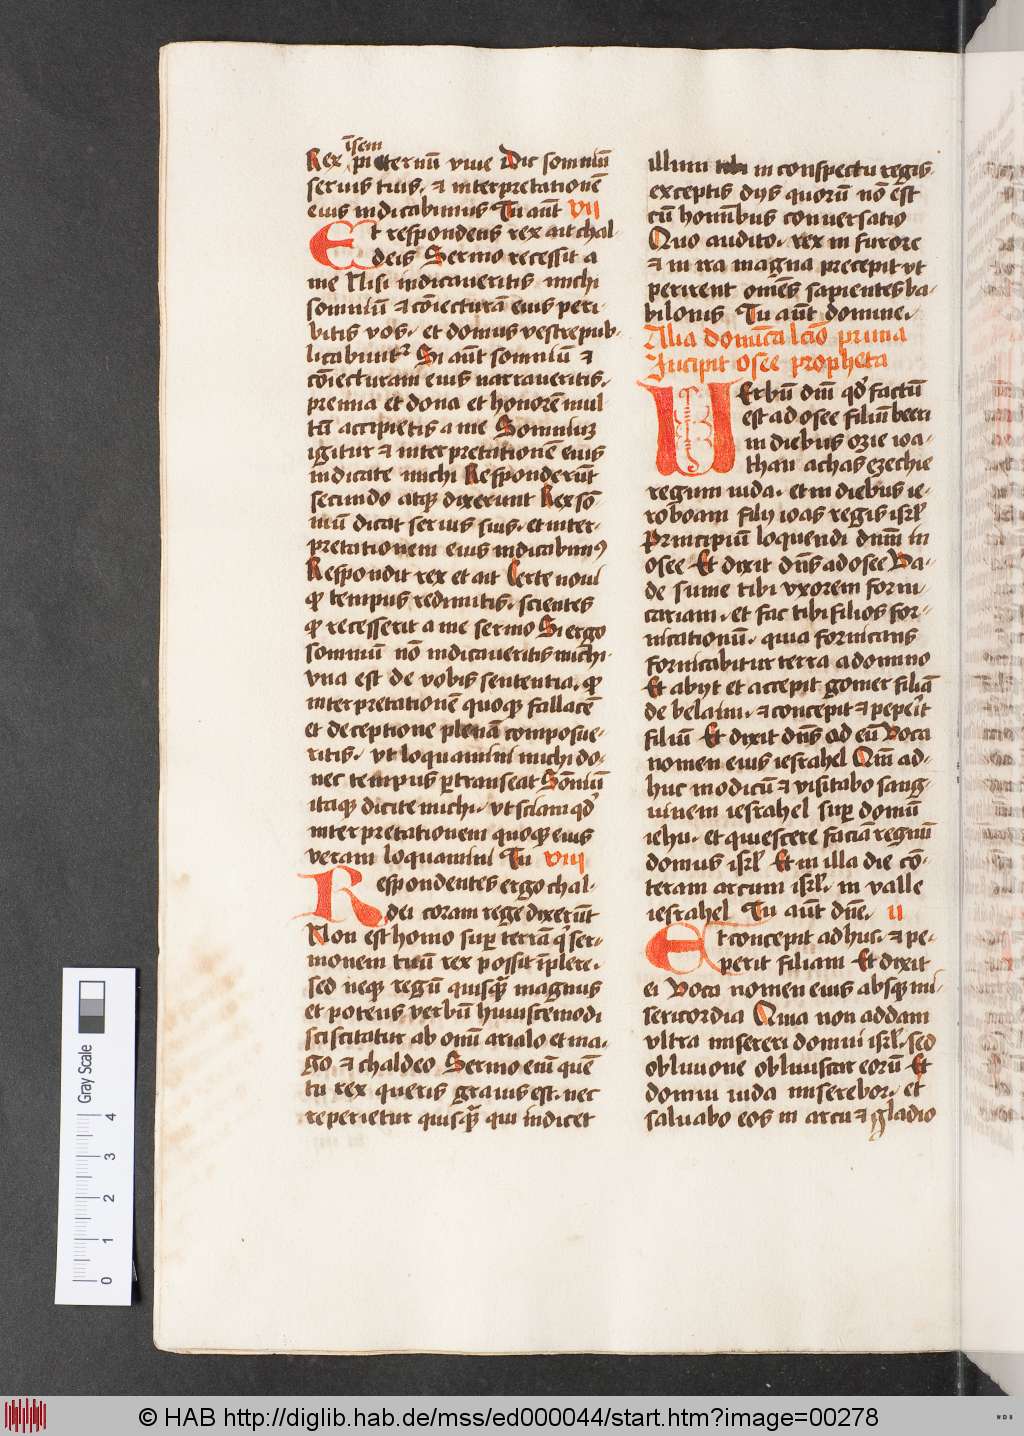 ı̄sem
Rex ı̄pi eternū vive Dic somniū
servis tuis. ⁊ interpretationē
eius indicabimus Tu aūt VII
Et respondens rex ait chal-
deis Sermo recessit a
me Nisi indicaveritis michi
somniū ⁊ cōiecturā eius peri-
bitis vos. et domus vestre pub-
licabunt᷑ Si aūt somniū ⁊
cōiecturam eius narraveritis.
premia et dona et honorē mul-
tū accipietis a me Somniuʒ
igitur ⁊ interpretationē eius
indicate michi Responderūt
secundo atqꝫ dixerunt Rex sō-
niū dicat servis suis. et inter-
pretationem eius indicabimꝰ
Respondit rex et ait Certe novi
ꝙ tempus redimitis. scientes
ꝙ recesserit a me sermo Si ergo
somniū nō indicaveritis michi
vna est de vobis sententia. ꝙ
interpretationē quoqꝫ fallacē
et deceptione plenā composue-
ritis. vt loquamini michi do-
nec tempus ꝑtranseat Sōniū
itaqꝫ dicite michi. vt sciam qd̓
interpretationem quoqꝫ eius
veram loquamini Tu VIII
Respondentes ergo chal-
dei coram rege dixerūt
Non est homo suꝑ terrā q̓ ser-
monem tuū rex possit īplere.
sed neqꝫ regū quisqꝫ̄ magnus
et potens verbū huiuscemodi
sciscitatur ab omī ariolo et ma-
go ⁊ chaldeo Sermo eni̅ quē
tu rex queris gravis est. nec
reperietur quisqꝫ̄ qui indicet
illum in conspectu regis
exceptis dijs quorū nō est
cū homībus conversatio
Quo audito. rex in furore
⁊ in ira magna precepit vt
perirent omēs sapientes ba-
bilonis Tu aūt domine.
Alia domīca lcīo prima
Incipit osee propheta
VErbū dn̄i qd̓ factū
est ad osee filiū beeri
in diebus ozie ioa-
than achas ezechie
regum iuda. et in diebus ie-
roboam filij ioas regis isrl̓
Principiū loquendi dn̄m in
osee Et dixit dn̄s ad osee Va-
de sume tibi vxorem forni-
cariam. et fac tibi filios for-
nicationū. quia fornicans
fornicabitur terra a domino
Et abijt et accepit gomer filiā
de belaim. ⁊ concepit ⁊ peper̓it
filiū Et dixit dn̄s ad eū Voca
nomen eius iesrahel Qm̄ ad-
huc modicū ⁊ visitabo sang-
uinem iesrahel suꝑ domū
iehu. et quiescere faciā regnū
domus isrl̓ Et in illa die cō-
teram arcum isrl̓. in valle
iesrahel Tu aūt dn̄e. II
Et concepit adhuc. ⁊ pe-
perit filiam Et dixit
ei Voca nomen eius absqꝫ mi
sericordia Quia non addam
vltra misereri domui isrl̓. sed
oblivione obliviscar eorū Et
domui iuda miserebor. et
salvabo eos in arcu ⁊ gladio
Gray Scale
0 1 2 3 4
© HAB http://diglib.hab.de/mss/ed000044/start.htm?image=00278